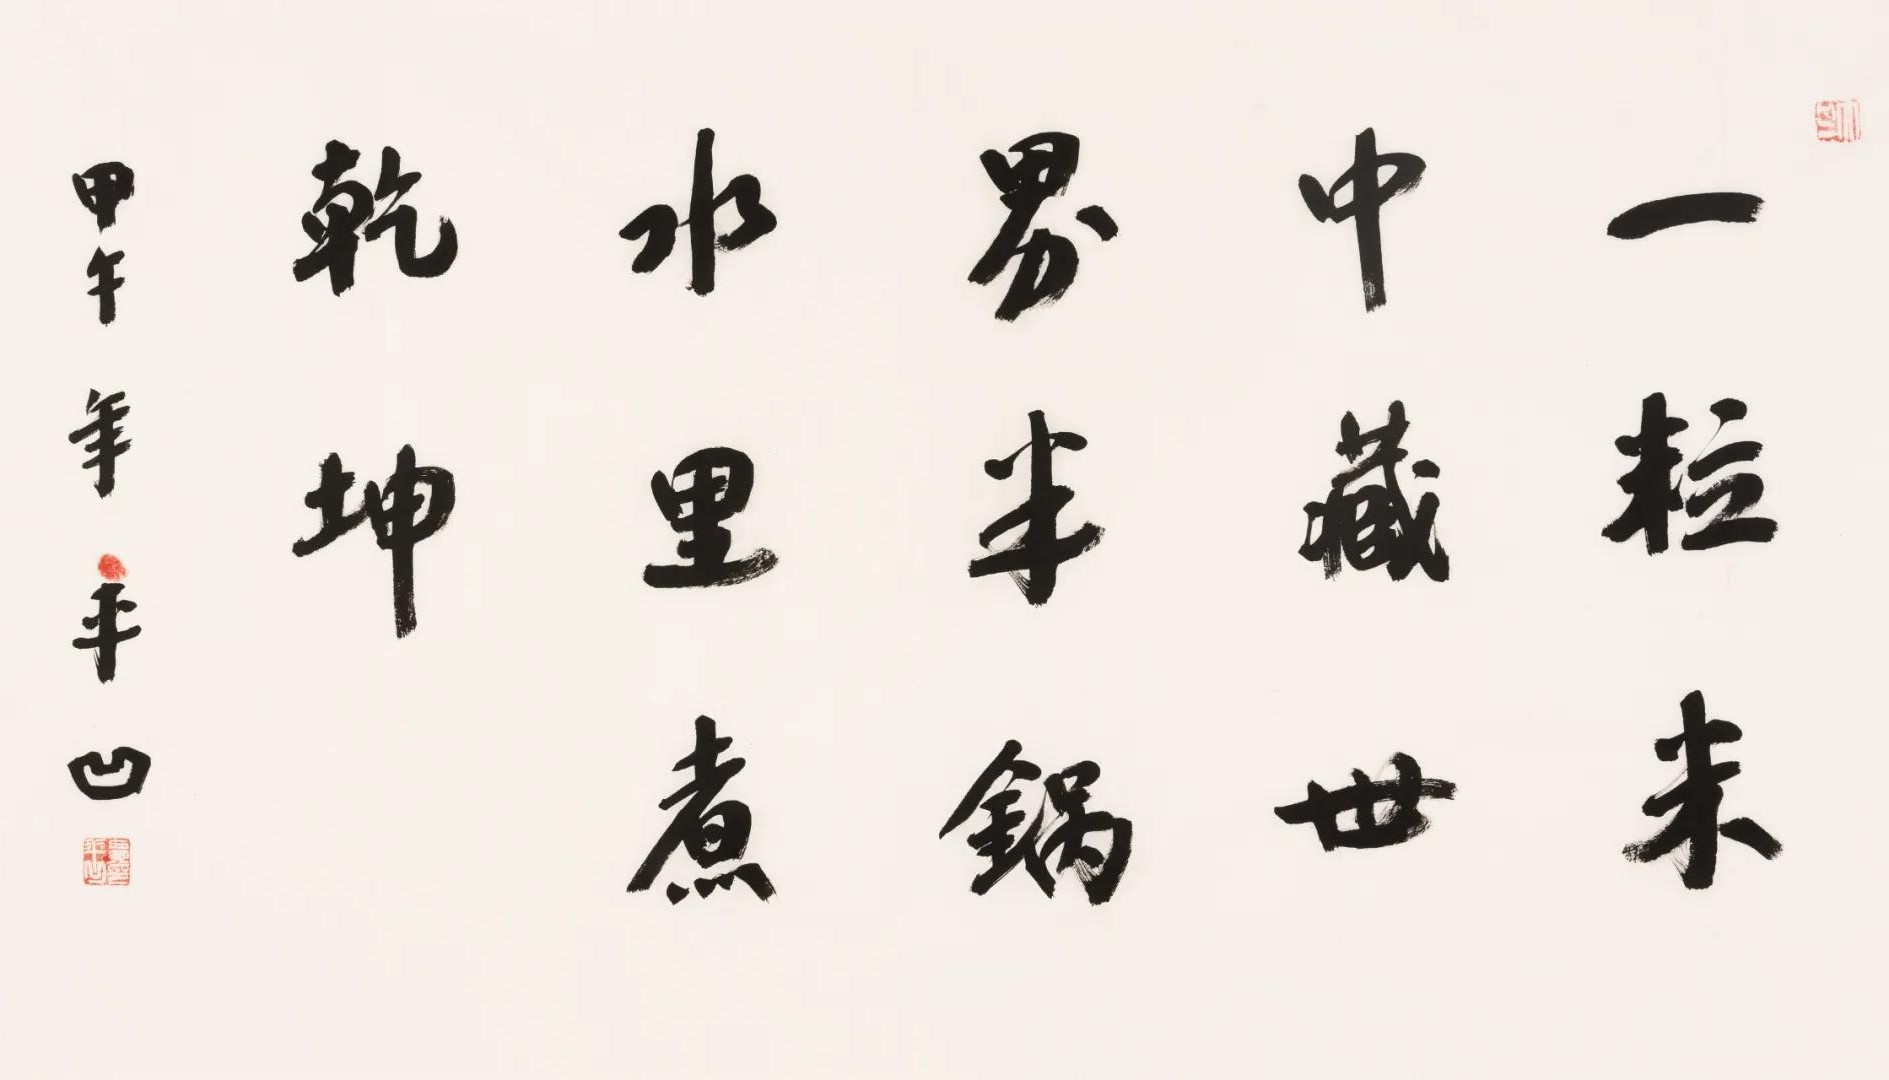 一粒米
中藏世
界半鍋
水里煮
乾坤
甲午年平凹